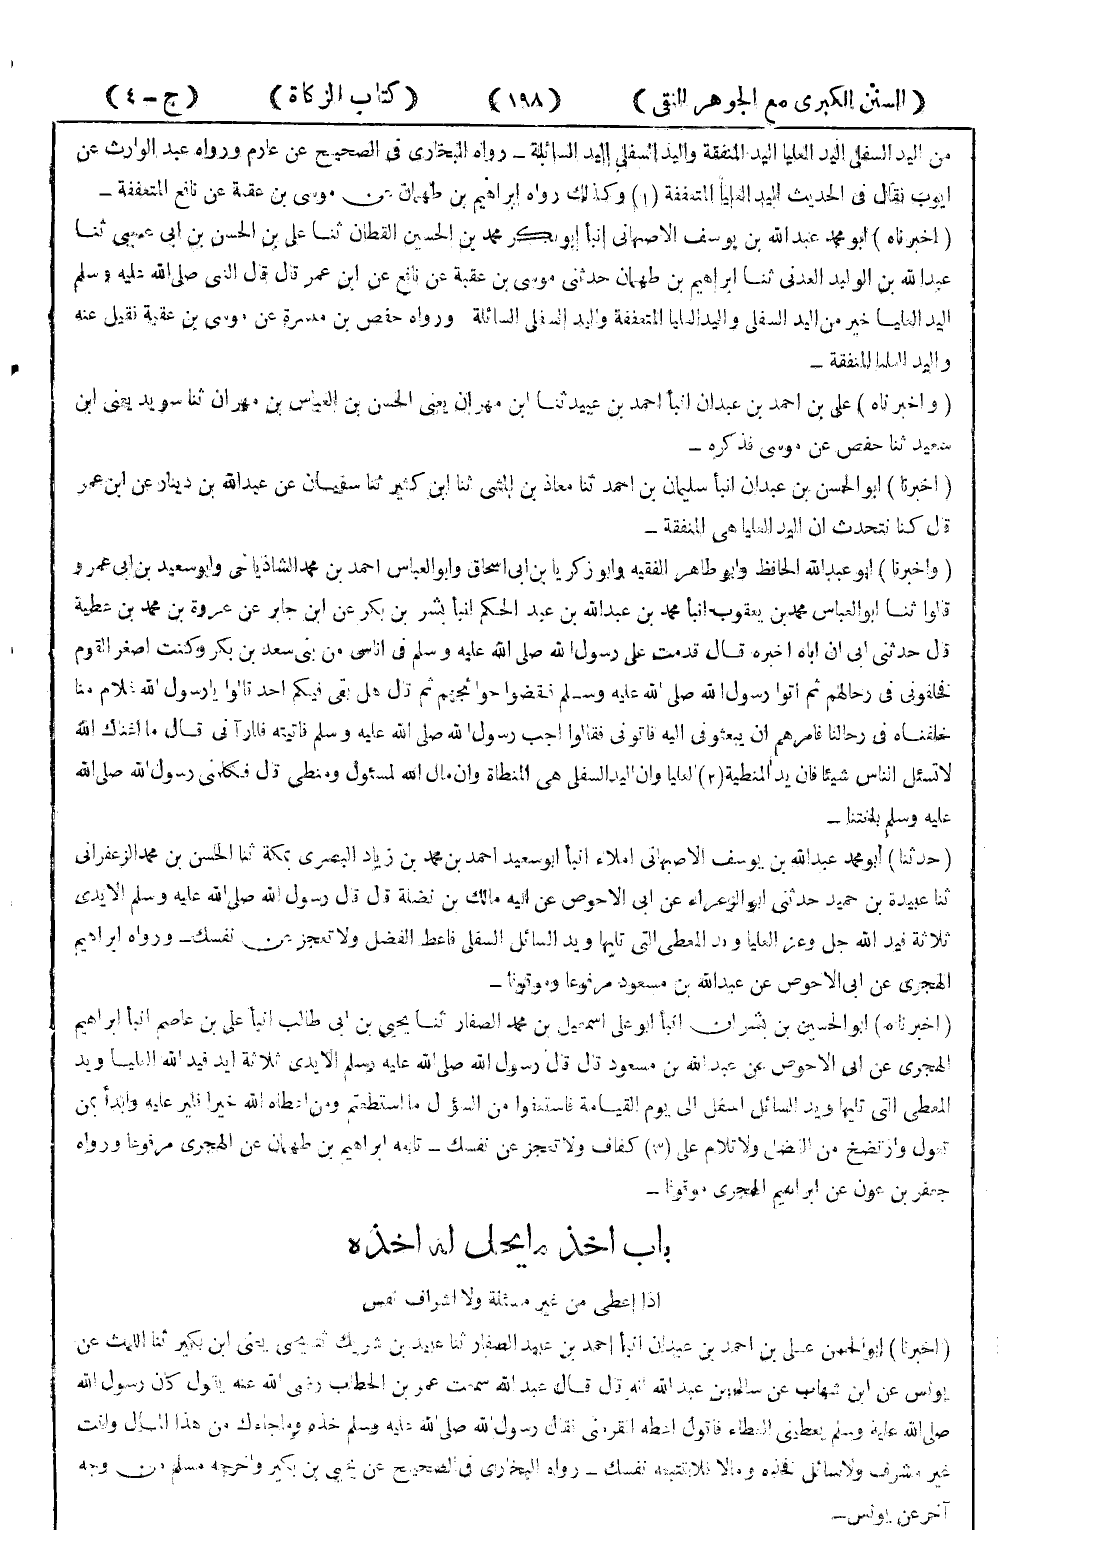 (السنن الكبرى مع الجوهر النقى) (١٩٨) (كتاب الزكاة) (ج-٤)
من اليد السفلى اليد العليا اليد المنفقة واليد السفلى اليد السائلة ـ رواه البخارى فى الصحيح عن عارم ورواه عبد الوارث عن
ايوب فقال فى الحديث اليد العليا المتعففة (١) وكذلك رواه ابراهيم بن طهمان عن موسى بن عقبة عن نافع المتعففة ـ
(اخبرناه) ابو محمد عبدالله بن يوسف الاصبهانى انبأ ابو بكر محمد بن الحسين القطان ثنا على بن الحسن بن ابى عيسى ثنا
عبدالله بن الوليد العدنى ثنا ابراهيم بن طهمان حدثنى موسى بن عقبة عن نافع عن ابن عمر قال قال النبى صلى الله عليه وسلم
اليد العليا خير من اليد السفلى واليد العليا المتعففة واليد السفلى السائلة ورواه حفص بن ميسرة عن موسى بن عقبة فقيل عنه
واليد العليا المنفقة ـ
(واخبرناه) على بن احمد بن عبدان انبأ احمد بن عبيد ثنا ابن مهران يعنى الحسن بن العباس بن مهران ثنا سويد يعنى ابن
سعيد ثنا حفص عن موسى فذكره ـ
(اخبرنا) ابو الحسن بن عبدان انبأ سليمان بن احمد ثنا معاذ بن المثنى ثنا ابن كثير ثنا سفيان عن عبدالله بن دينار عن ابن عمر
قال كنا نتحدث ان اليد العليا هى المنفقة ـ
(واخبرنا) ابو عبدالله الحافظ وابو طاهر الفقيه وابو زكريا بن ابى اسحاق وابو العباس احمد بن محمد الشاذياخى وابو سعيد بن ابى عمرو
قالوا ثنا ابو العباس محمد بن يعقوب انبأ محمد بن عبدالله بن عبد الحكم انبأ بشر بن بكر عن ابن جابر عن عروة بن محمد بن عطية
قال حدثنى ابى ان اباه اخبره قال قدمت على رسول الله صلى الله عليه وسلم فى اناس من بنى سعد بن بكر وكنت اصغر القوم
فخلفونى فى رحالهم ثم اتوا رسول الله صلى الله عليه وسلم فقضوا حوائجهم ثم قال هل بقى فيكم احد قالوا يا رسول الله غلام منا
خلفناه فى رحالنا فامرهم ان يبعثونى اليه فاتونى فقالوا اجب رسول الله صلى الله عليه وسلم فاتيته فلما رآنى قال ما اغناك الله
لا تسئل الناس شيئا فان يد المنطية (٢) العليا وان اليد السفلى هى المنطاة وان مال الله لمسئول ومنطى قال فكلمنى رسول الله صلى الله
عليه وسلم بلغتنا ـ
(حدثنا) أبو محمد عبدالله بن يوسف الاصبهانى املاء انبأ ابو سعيد احمد بن محمد بن زياد البصرى بمكة ثنا الحسن بن محمد الزعفرانى
ثنا عبيدة بن حميد حدثنى ابو الزعراء عن ابى الاحوص عن ابيه مالك بن نضلة قال قال رسول الله صلى الله عليه وسلم الايدى
ثلاثة فيد الله جل وعز العليا ويد المعطى التى تليها ويد السائل السفلى فاعط الفضل ولا تعجز عن نفسك ـ ورواه ابراهيم
الهجرى عن ابى الاحوص عن عبدالله بن مسعود مرفوعا وموقوفا ـ
(اخبرناه) ابو الحسين بن بشران انبأ ابو على اسمعيل بن محمد الصفار ثنا يحيى بن ابى طالب انبأ على بن عاصم انبأ ابراهيم
الهجرى عن ابى الاحوص عن عبدالله بن مسعود قال قال رسول الله صلى الله عليه وسلم الايدى ثلاثة ايد فيد الله العليا ويد
المعطى التى تليها ويد السائل اسفل الى يوم القيامة فاستعفوا من السؤال ما استطعتم ومن اعطاه الله خيرا فلير عليه وابدأ بمن
تعول وارتضخ من الفضل ولا تلام على (٣) كفاف ولا تعجز عن نفسك ـ تابعه ابراهيم بن طهمان عن الهجرى مرفوعا ورواه
جعفر بن عون عن ابراهيم الهجرى موقوفا ـ
باب اخذ ما يحل له اخذه
اذا اعطى من غير مسئلة ولا اشراف نفس
(اخبرنا) ابو الحسن على بن احمد بن عبدان انبأ احمد بن عبيد الصفار ثنا عبيد بن شريك ثنا يحيى يعنى ابن بكير ثنا الليث عن
يونس عن ابن شهاب عن سالم بن عبد الله انه قال قال عبد الله سمعت عمر بن الخطاب رضى الله عنه يقول كان رسول الله
صلى الله عليه وسلم يعطينى العطاء فاقول اعطه افقر منى فقال رسول الله صلى الله عليه وسلم خذه وما جاءك من هذا المال وانت
غير مشرف ولا سائل فخذه وما لا فلا تتبعه نفسك ـ رواه البخارى فى الصحيح عن يحيى بن بكير واخرجه مسلم من وجه
آخر عن يونس ـ